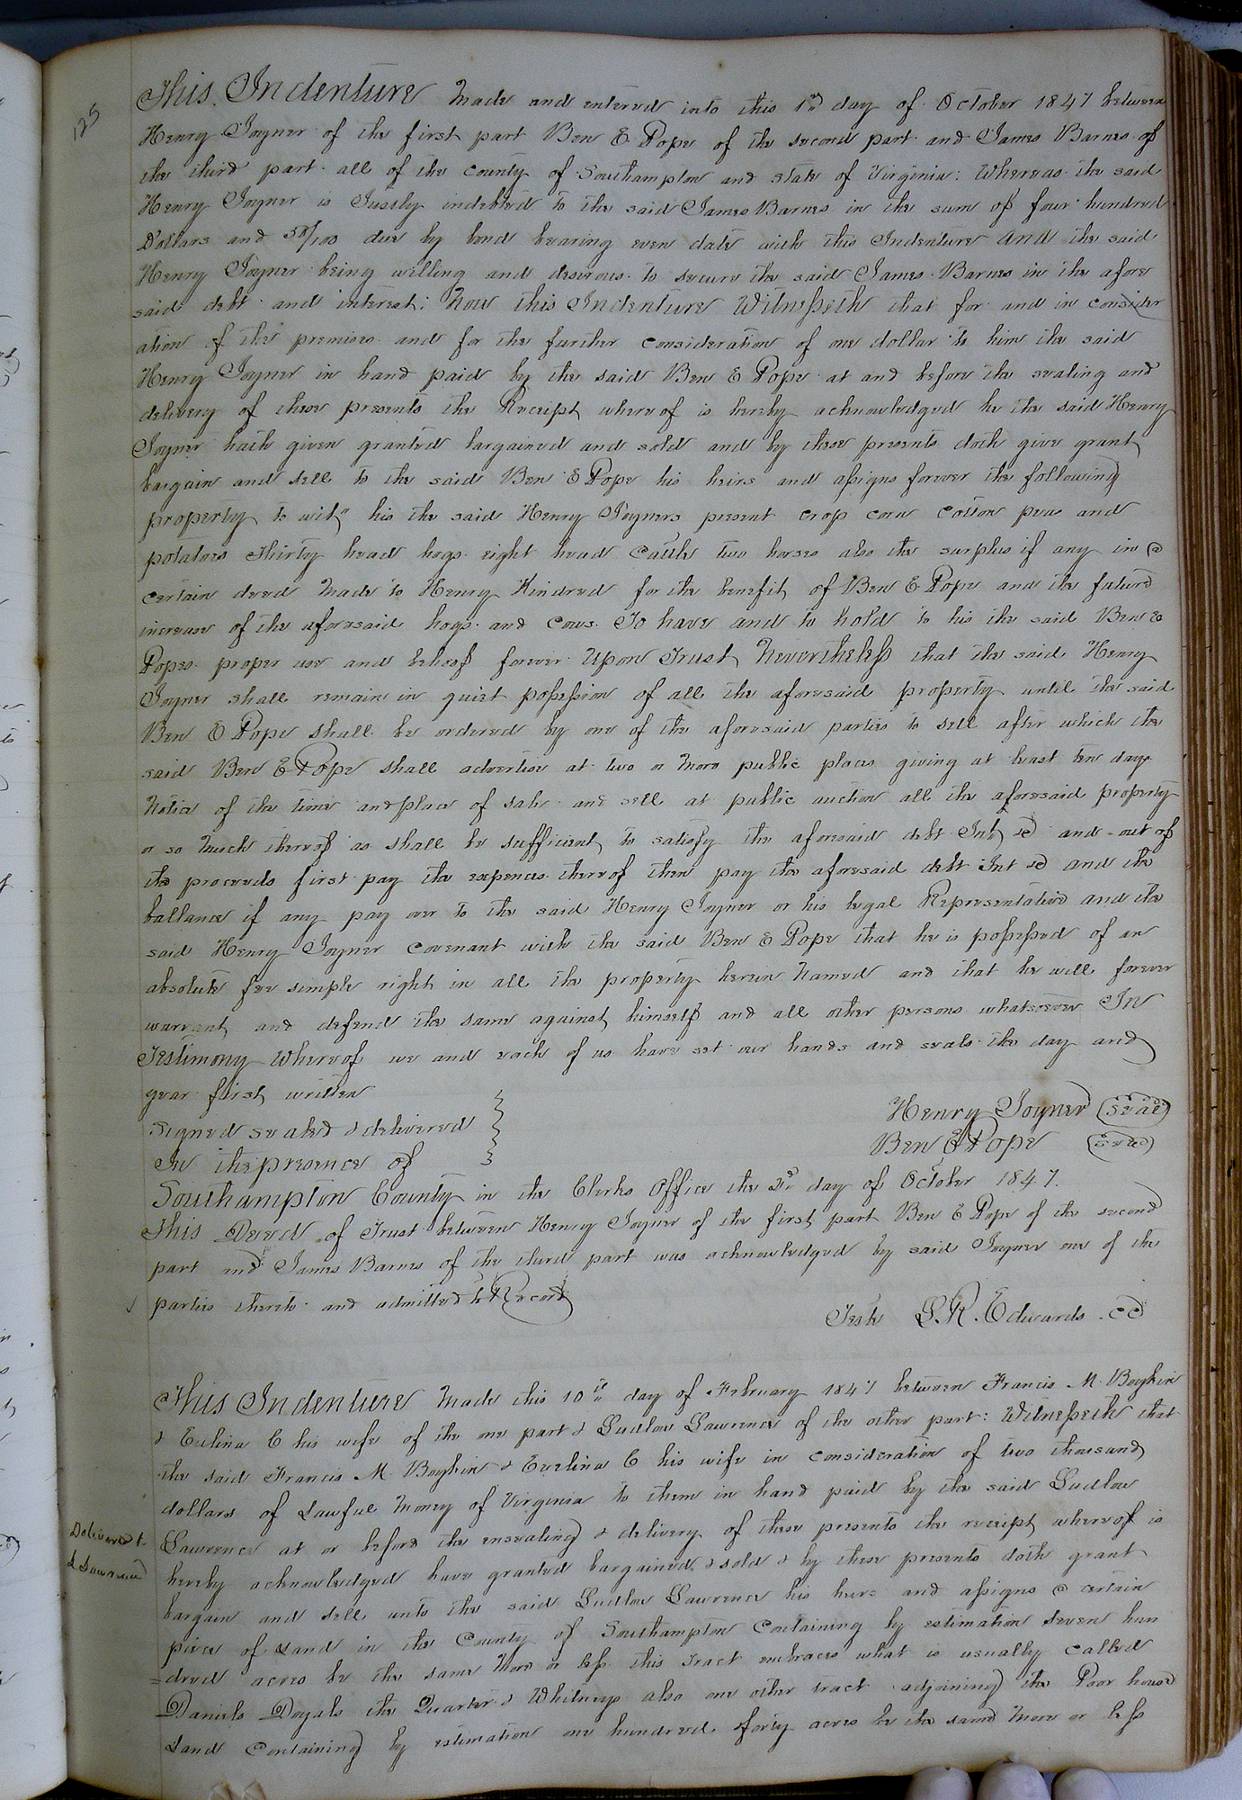 125
This Indenture Made and entered into this 1st day of October 1847 between
Henry Joyner of the first part Ben E Pope of the second part and James Barnes of
the third part all of the county of Southampton and state of Virginia: Whereas the said
Henry Joyner is Justly indebted to the said James Barnes in the sum of four hundred
Dollars and 58/100 due by bond bearing even date with this Indenture and the said
Henry Joyner being willing and desirous to secure the said James Barnes in the afore
said debt and interest: Now this Indenture Witnesseth that for and in consider
ation of the premises and for the further consideration of one dollar to him the said
Henry Joyner in hand paid by the said Ben E Pope at and before the sealing and
delivery of these presents the Receipt whereof is hereby acknowledged he the said Henry
Joyner hath given granted bargained and sold and by these presents doth give grant
bargain and sell to the said Ben E Pope his heirs and assigns forever the following
property to wit" his the said Henry Joyners present crop corn cotton peas and
potatoes thirty head hogs eight head Cattle two horses also the surplus if any in a
certain deed Made to Henry Kindred for the benefit of Ben E Pope and the future
increase of the aforesaid hogs and cows. To have and to hold to his the said Ben E
Popes proper use and behoof forever Upon Trust Nevertheless that the said Henry
Joyner shall remain in quiet possession of all the aforesaid property until the said
Ben E Pope shall be ordered by one of the aforesaid parties to sell after which the
said Ben E Pope shall advertise at two or More public places giving at least ten days
Notice of the time and place of sale and sell at public auction all the aforesaid property
or so Much thereof as shall be sufficient to satisfy the aforesaid debt Int &c and out of
the proceeds first pay the expences thereof then pay the aforesaid debt Int &c and the
ballance if any pay over to the said Henry Joyner or his legal Representative and the
said Henry Joyner covenant with the said Ben E Pope that he is possessed of an
absolute fee simple right in all the property herein Named and that he will forever
warrant and defend the same against himself and all other persons whatsoever In
Testimony Whereof we and each of us have set our hands and seals the day and
year first written
Signed sealed & delivered
In the presence of
Henry Joyner (Seal)
Ben E Pope (Seal)
Southampton County in the Clerks Office the day of October 1847.
This Deed of Trust between Henry Joyner of the first part Ben E Pope of the second
part and James Barnes of the third part was acknowledged by said Joyner one of the
parties thereto and admitted to Record
Teste L. R. Edwards CC
This Indenture Made this 10th day of February 1847 between Francis M. Boykin
& Evelina C his wife of the one part & Ludlow Lawrence of the other part: Witnesseth that
the said Francis M. Boykin & Evelina C his wife in consideration of two thousand
dollars of Lawful Money of Virginia to them in hand paid by the said Ludlow
Delivered to
L Lawrence
Lawrence at or before the ensealing & delivery of these presents the receipt whereof is
hereby acknowledged have granted bargained & sold & by these presents doth grant
bargain and sell unto the said Ludlow Lawrence his heirs and assigns a certain
piece of Land in the County of Southampton Containing by estimation Seven hun
=dred acres be the same More or less this tract embraces what is usually called
Daniels Doyals the Quarter & Whitneys also one other tract adjoining the Poor house
Land Containing by estimation one hundred & forty acres be the same More or less